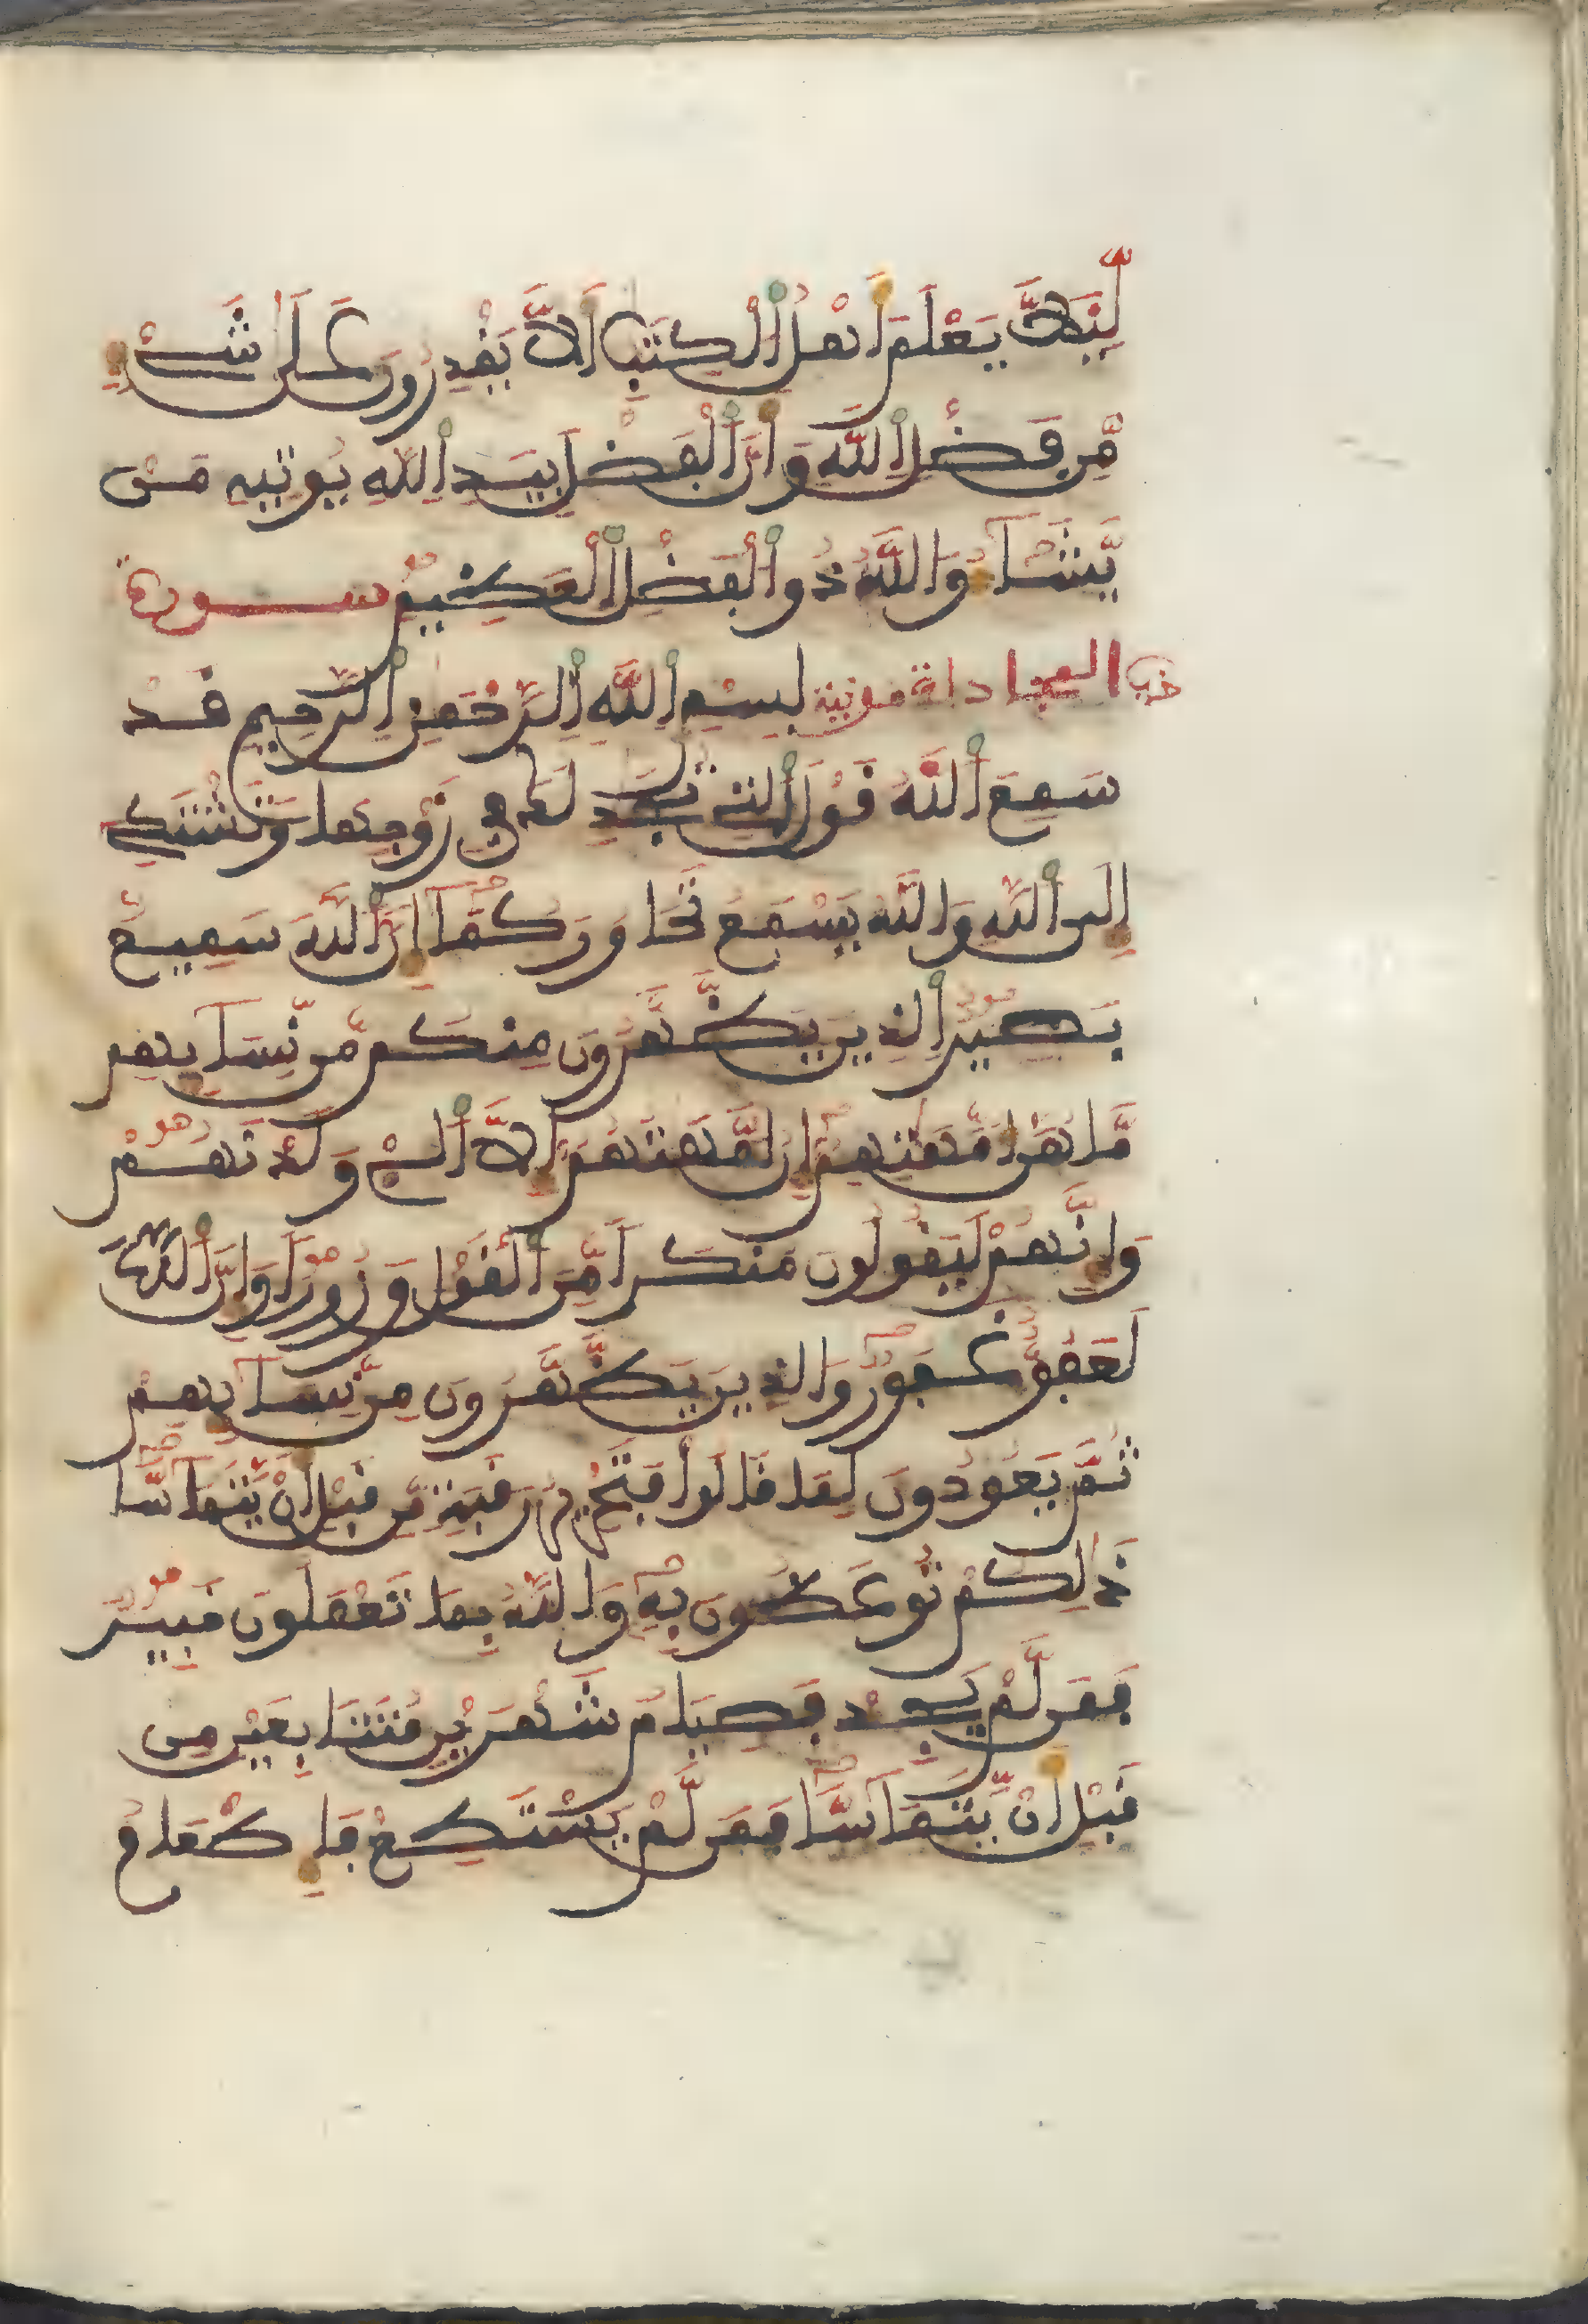 لِّيَلَّا يَعْلَمَ أَهْلُ ٱلْكِتَٰبِ أَلَّا يَقْدِرُونَ عَلَىٰ شَےْءٖ
مِّن فَضْلِ ٱللَّهِ وَأَنَّ ٱلْفَضْلَ بِيَدِ ٱللَّهِ يُوتِيهِ مَنْ
يَّشَآءُ وَٱللَّهُ ذُو ٱلْفَضْلِ ٱلْعَظِيمِ سورة
حزب المجادلة مدنية بِسْمِ ٱللَّهِ ٱلرَّحْمَٰنِ ٱلرَّحِيمِ قَدْ
سَمِعَ ٱللَّهُ قَوْلَ ٱلتِے تُجَٰدِلُكَ فِے زَوْجِهَا وَتَشْتَكِے
إِلَى ٱللَّهِ وَٱللَّهُ يَسْمَعُ تَحَاوُرَكُمَآ إِنَّ ٱللَّهَ سَمِيعٌ
بَصِيرٌ ٱلذِينَ يَظَّهَّرُونَ مِنكُم مِّن نِّسَآئِهِم
مَّا هُنَّ أُمَّهَٰتِهِمْ إِنْ أُمَّهَٰتُهُمْ إِلَّا ٱلِۓ وَلَدْنَهُمْ
وَإِنَّهُمْ لَيَقُولُونَ مُنكَراً مِّنَ ٱلْقَوْلِ وَزُوراً وَإِنَّ ٱللَّهَ
لَعَفُوٌّ غَفُورٌ وَالذِينَ يَظَّهَّرُونَ مِن نِّسَآئِهِمْ
ثُمَّ يَعُودُونَ لِمَا قَالُوا فَتَحْرِيرُ رَقَبَةٍ مِّن قَبْلِ أَنْ يَّتَمَآسَّا
ذَٰلِكُمْ تُوعَظُونَ بِهِۦ وَٱللَّهُ بِمَا تَعْمَلُونَ خَبِيرٌ
فَمَن لَّمْ يَجِدْ فَصِيَامُ شَهْرَيْنِ مُتَتَابِعَيْنِ مِن
قَبْلِ أَنْ يَّتَمَآسَّا فَمَن لَّمْ يَسْتَطِعْ فَإِطْعَامُ